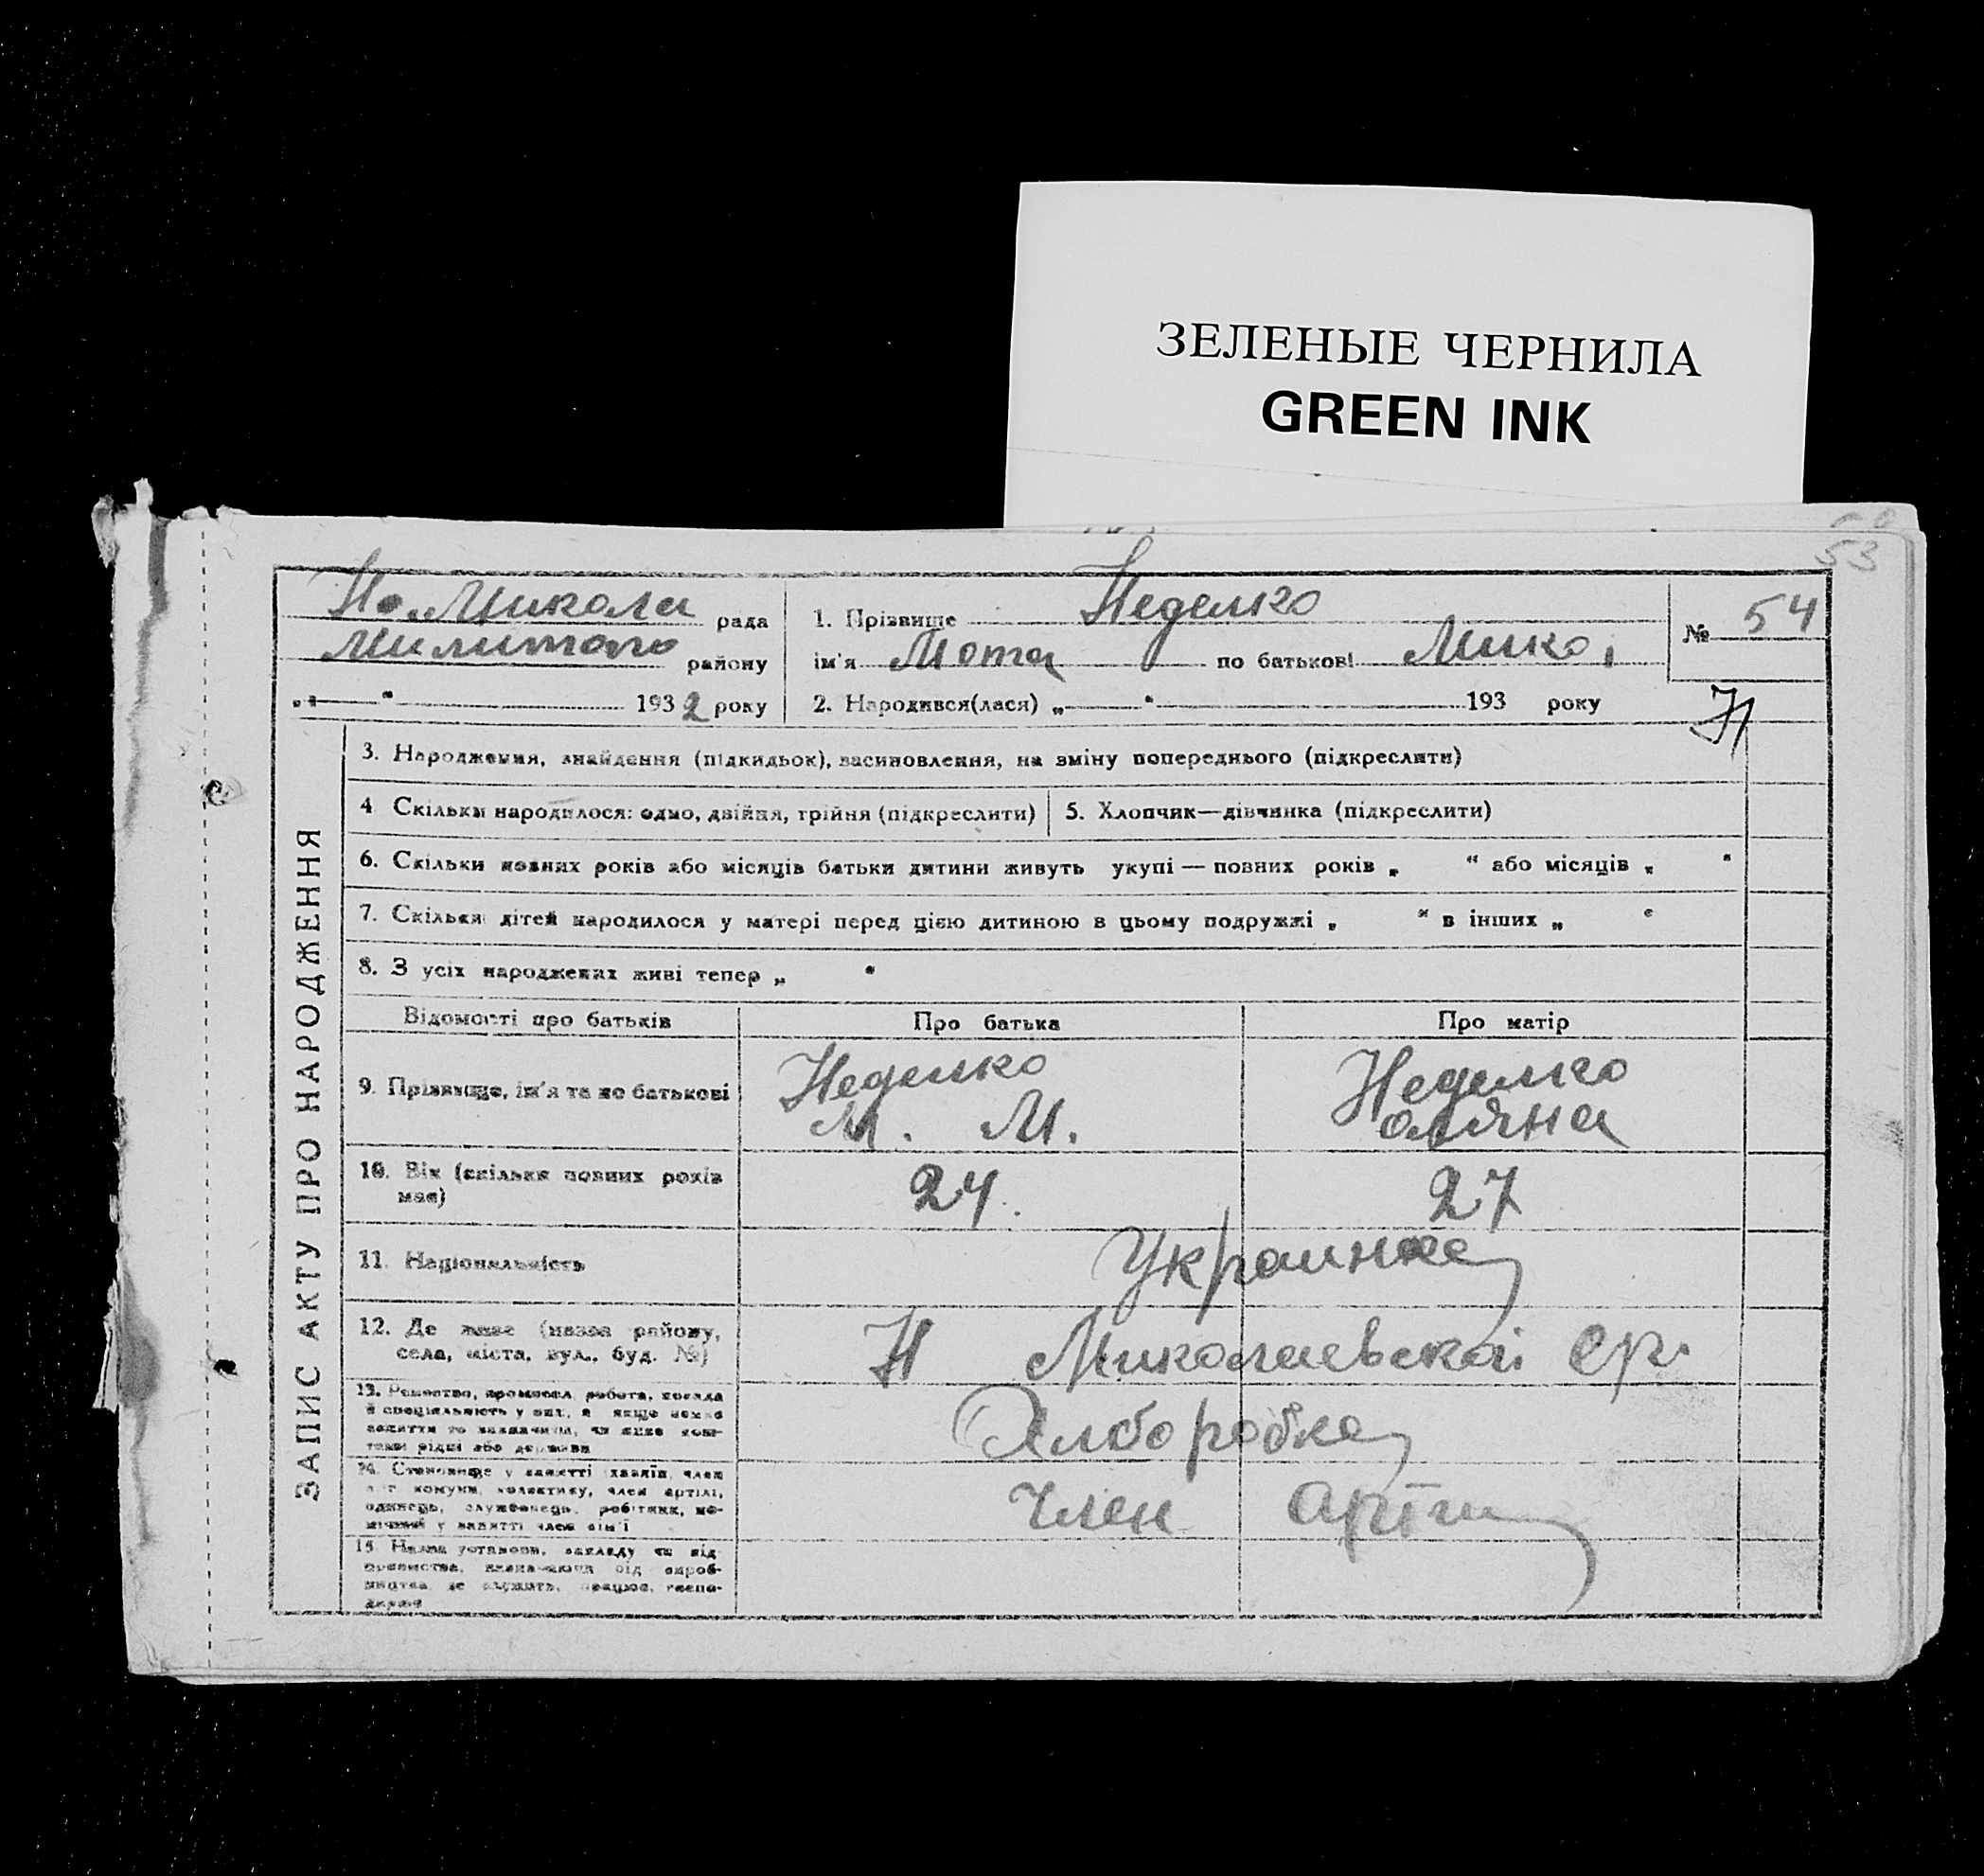 ЗЕЛЕНЫЕ ЧЕРНИЛА
GREEN INK
53
Но. Микола рада
Милитопо району
„ “ 1932 року
1. Прізвище Неделко
ім'я Мотя по батькові Мико,
2. Народився(лася) „ “ 193 року
№ 54
Н
ЗАПИС АКТУ ПРО НАРОДЖЕННЯ
3. Народження, знайдення (підкидьок), васиновлення, на зміну попереднього (підкреслити)
4 Скільки народилося: одно, двійня, трійня (підкреслити)
5. Хлопчик—дівчинка (підкреслити)
6. Скільки повних років або місяців батьки дитини живуть укупі — повних років „ “ або місяців „ “
7. Скільки дітей народилося у матері перед цією дитиною в цьому подружжі „ “ в інших „ “
8. З усіх народжених живі тепер „ “
Відомості про батьків Про батька Про матір
9. Прізвище, ім'я та по батькові
Неделко
М. М.
Неделко
Оляна
10. Вік (скільки повних років має)
24. 27
11. Національність
Украинка
12. Де живе (назва району,
села, міста, вул., буд. №)
Н Миколаевской ср.
13. Ремество, промисел, робота, посада
й спеціяльність у ній, а якщо немає
заняття то зазначити, чи живе кош-
тами рідні або держави
Хлборобка
14. Становище у занятті: хазяїн, член
комуни, колективу, член артілі,
одинець, службовець, робітник, по-
мічний у занятті член сім'ї
Член артіли
15. Назва установи, закладу чи під-
приємства, незалежно від вироб-
ництва, де служить, працює, госпо-
дарює